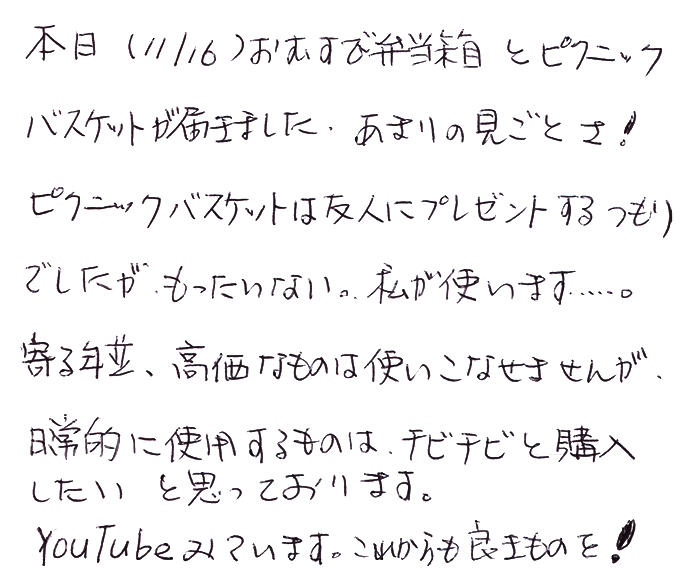 本日(11/16)おむすび弁当箱とピクニック
バスケットが届きました.あまりの見ごとさ!
ピクニックバスケットは友人にプレゼントするつもり
でしたが、もったいない。.私が使います.....。
寄る年並、高価なものは使いこなせませんが、
日常的に使用するものは、チビチビと購入
したいと思っております。
YouTubeみています。これからも良きものを!